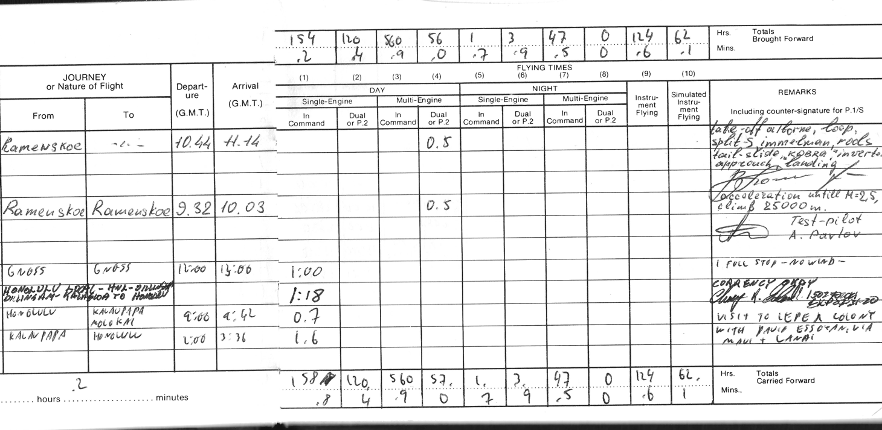 154 120 560 56 1 3 47 0 124 62 Hrs. Totals
Brought Forward
.2 .4 .9 .0 .7 .9 .5 0 .6 .1 Mins.
JOURNEY
or Nature of Flight
Depart-
ure
(G.M.T.)
Arrival
(G.M.T.)
From To
FLYING TIMES
(1) (2) (3) (4) (5) (6) (7) (8) (9) (10)
DAY NIGHT
Single-Engine Multi-Engine Single-Engine Multi-Engine
In
Command
Dual
or P.2
In
Command
Dual
or P.2
In
Command
Dual
or P.2
In
Command
Dual
or P.2
Instru-
ment
Flying
Simulated
Instru-
ment
Flying
REMARKS
Including counter-signature for P.1/S
Ramenskoe -〃- 10.44 11.14 0.5
take-off airborne, loop,
split-S immelman, rolls
tail-slide, KOBRA, inverto
approuch, landing
Ramenskoe Ramenskoe 9.32 10.03 0.5
acceleration untill M=2,5,
climb 25000 m.
Test-pilot
A. Pavlov
GNOSS GNOSS 12:00 13:00 1:00 1 FULL STOP - NO WIND -
HONOLULU LOCAL - HNL -
TO 1:18 CURRENCY OKAY
HONOLULU KALAUPAPA
MOLOKAI
9:00 9:42 0.7 VISIT TO LEPER COLONY
KALAUPAPA HONOLULU 2:00 3:36 1.6 WITH DAVID ESSOYAN, VIA
MAUI + LANAI
.2
hours minutes
158 120. 560 57. 1. 3. 47 0 124 62. Hrs. Totals
Carried Forward
.8 4 .9 0 7 9 .5 0 .6 1 Mins.